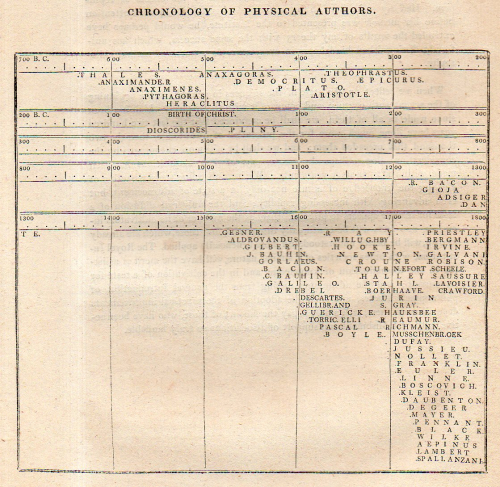 CHRONOLOGY OF PHYSICAL AUTHORS.
700 B.C. 600 500 400 300 200
.THALES. ANAXAGORAS. .THEOPHRASTUS.
.ANAXIMANDER DEMOCRITUS. .EPICURUS.
ANAXIMENES. .PLATO.
.PYTHAGORAS. .ARISTOTLE.
HERACLITUS
200 B.C. 100 BIRTH OF CHRIST. 100 200 300
DIOSCORIDES .PLINY.
300 400 500 600 700 800
800 900 1000 1100 1200 1300
.R. BACON.
GIOJA
ADSIGER
DAN
1300 1400 1500 1600 1700 1800
TE. .GESNER. .RAY. .PRIESTLEY
.ALDROVANDUS. .WILLUGHBY .BERGMANN
.GILBERT. .HOOKE. IRVINE.
J. BAUHIN. .NEWTON. GALVANI
GORLAEUS. CROUNE .ROBISON.
.BACON. .TOURNEFORT .SCHEELE.
.C. BAUHIN. .HALLEY .SAUSSURE
.GALILEO. .STAHL .LAVOISIER.
.DREBEL .BOERHAAVE. CRAWFORD.
DESCARTES. JURIN
.GELLIBRAND S. GRAY.
.GUERICKE. HAUKSBEE
.TORRICELLI .REAUMUR.
PASCAL RICHMANN.
.BOYLE. MUSSCHENBROEK
DUFAY.
.JUSSIEU.
NOLLET.
.FRANKLIN.
.EULER.
.LINNE.
.BOSCOVICH.
.KLEIST.
.DAUBENTON.
.DEGEER
.MAYER.
.PENNANT.
.BLACK
.WILKE
.AEPINUS
.LAMBERT
.SPALLANZANI.